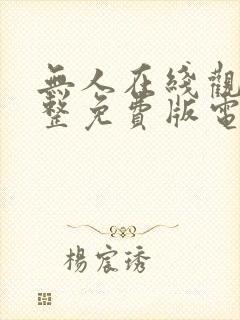 無人在綫觀
整免費版電
楊宸琇